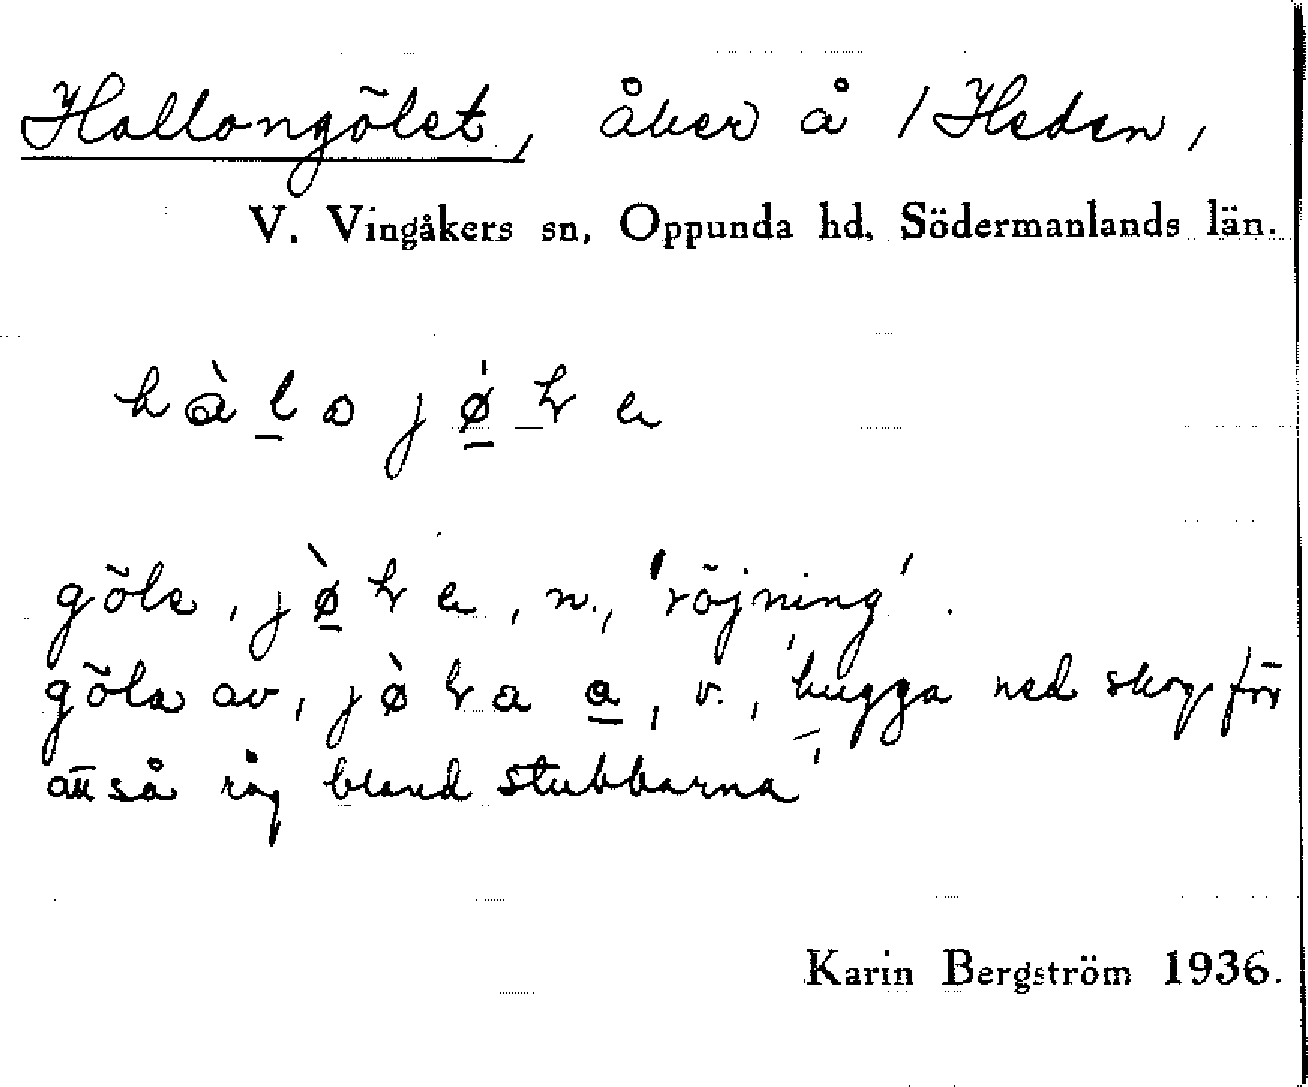 Hallongölet, åker å 1 Heden,
V. Vingåkers sn, Oppunda hd, Södermanlands län.
göle, n., 'röjning'.
göla av, v., 'hugga ned skog för
att så råg bland stubbarna'
Karin Bergström 1936.